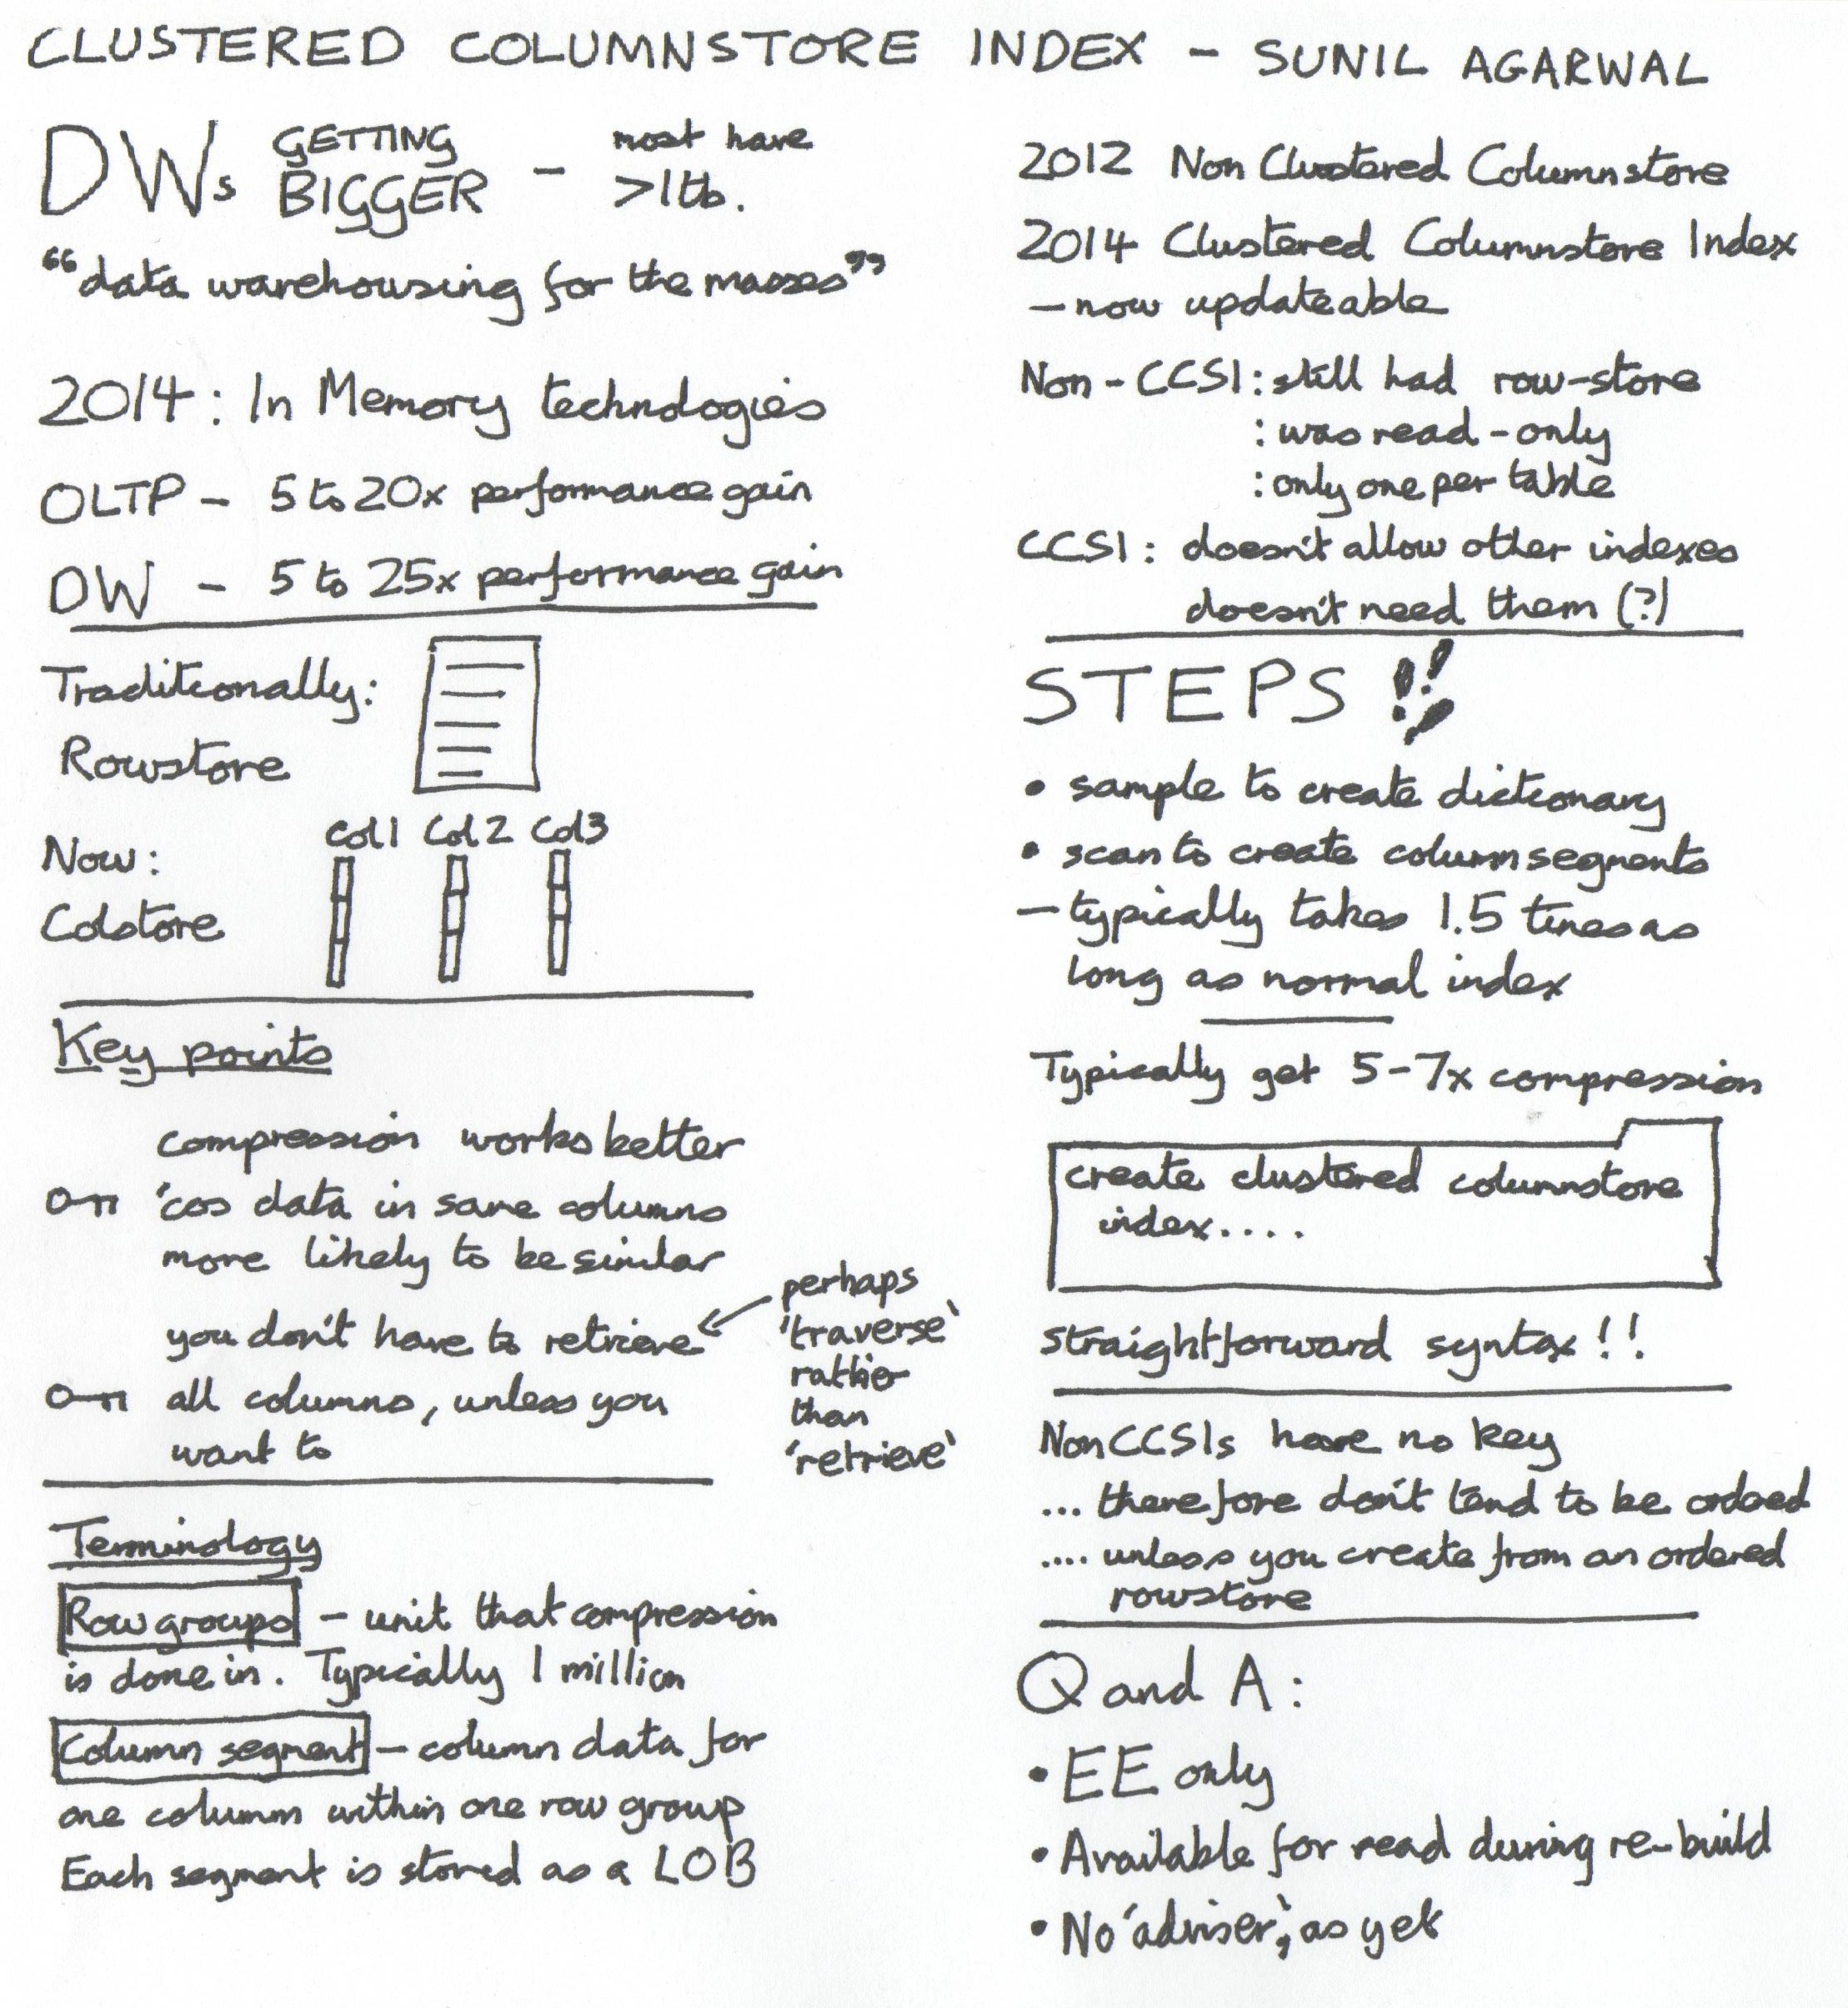 CLUSTERED COLUMNSTORE INDEX - SUNIL AGARWAL
DWs GETTING BIGGER - most have >1tb.
"data warehousing for the masses"
2014: In Memory technologies
OLTP - 5 to 20x performance gain
DW - 5 to 25x performance gain
Traditionally:
Rowstore
Now:
Colstore
Col1 Col2 Col3
Key points
compression works better
'cos data in same columns
more likely to be similar
you don't have to retrieve
all columns, unless you
want to
perhaps
'traverse'
rather
than
'retrieve'
Terminology
Row groups - unit that compression
is done in. Typically 1 million
Column segment - column data for
one column within one row group
Each segment is stored as a LOB
2012 Non Clustered Columnstore
2014 Clustered Columnstore Index
- now updateable
Non-CCSI: still had row-store
: was read-only
: only one per table
CCSI: doesn't allow other indexes
doesn't need them (?)
STEPS !!
• sample to create dictionary
• scan to create column segments
- typically takes 1.5 times as
long as normal index
Typically get 5-7x compression
create clustered columnstore
index....
straightforward syntax!!
NonCCSIs have no key
... therefore don't tend to be ordered
.... unless you create from an ordered
rowstore
Q and A:
• EE only
• Available for read during re-build
• No 'adviser', as yet